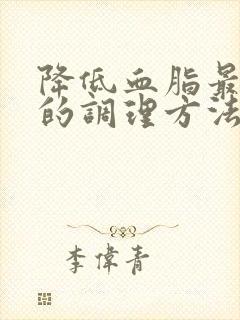 降低血脂最
的調理方法
李偉青